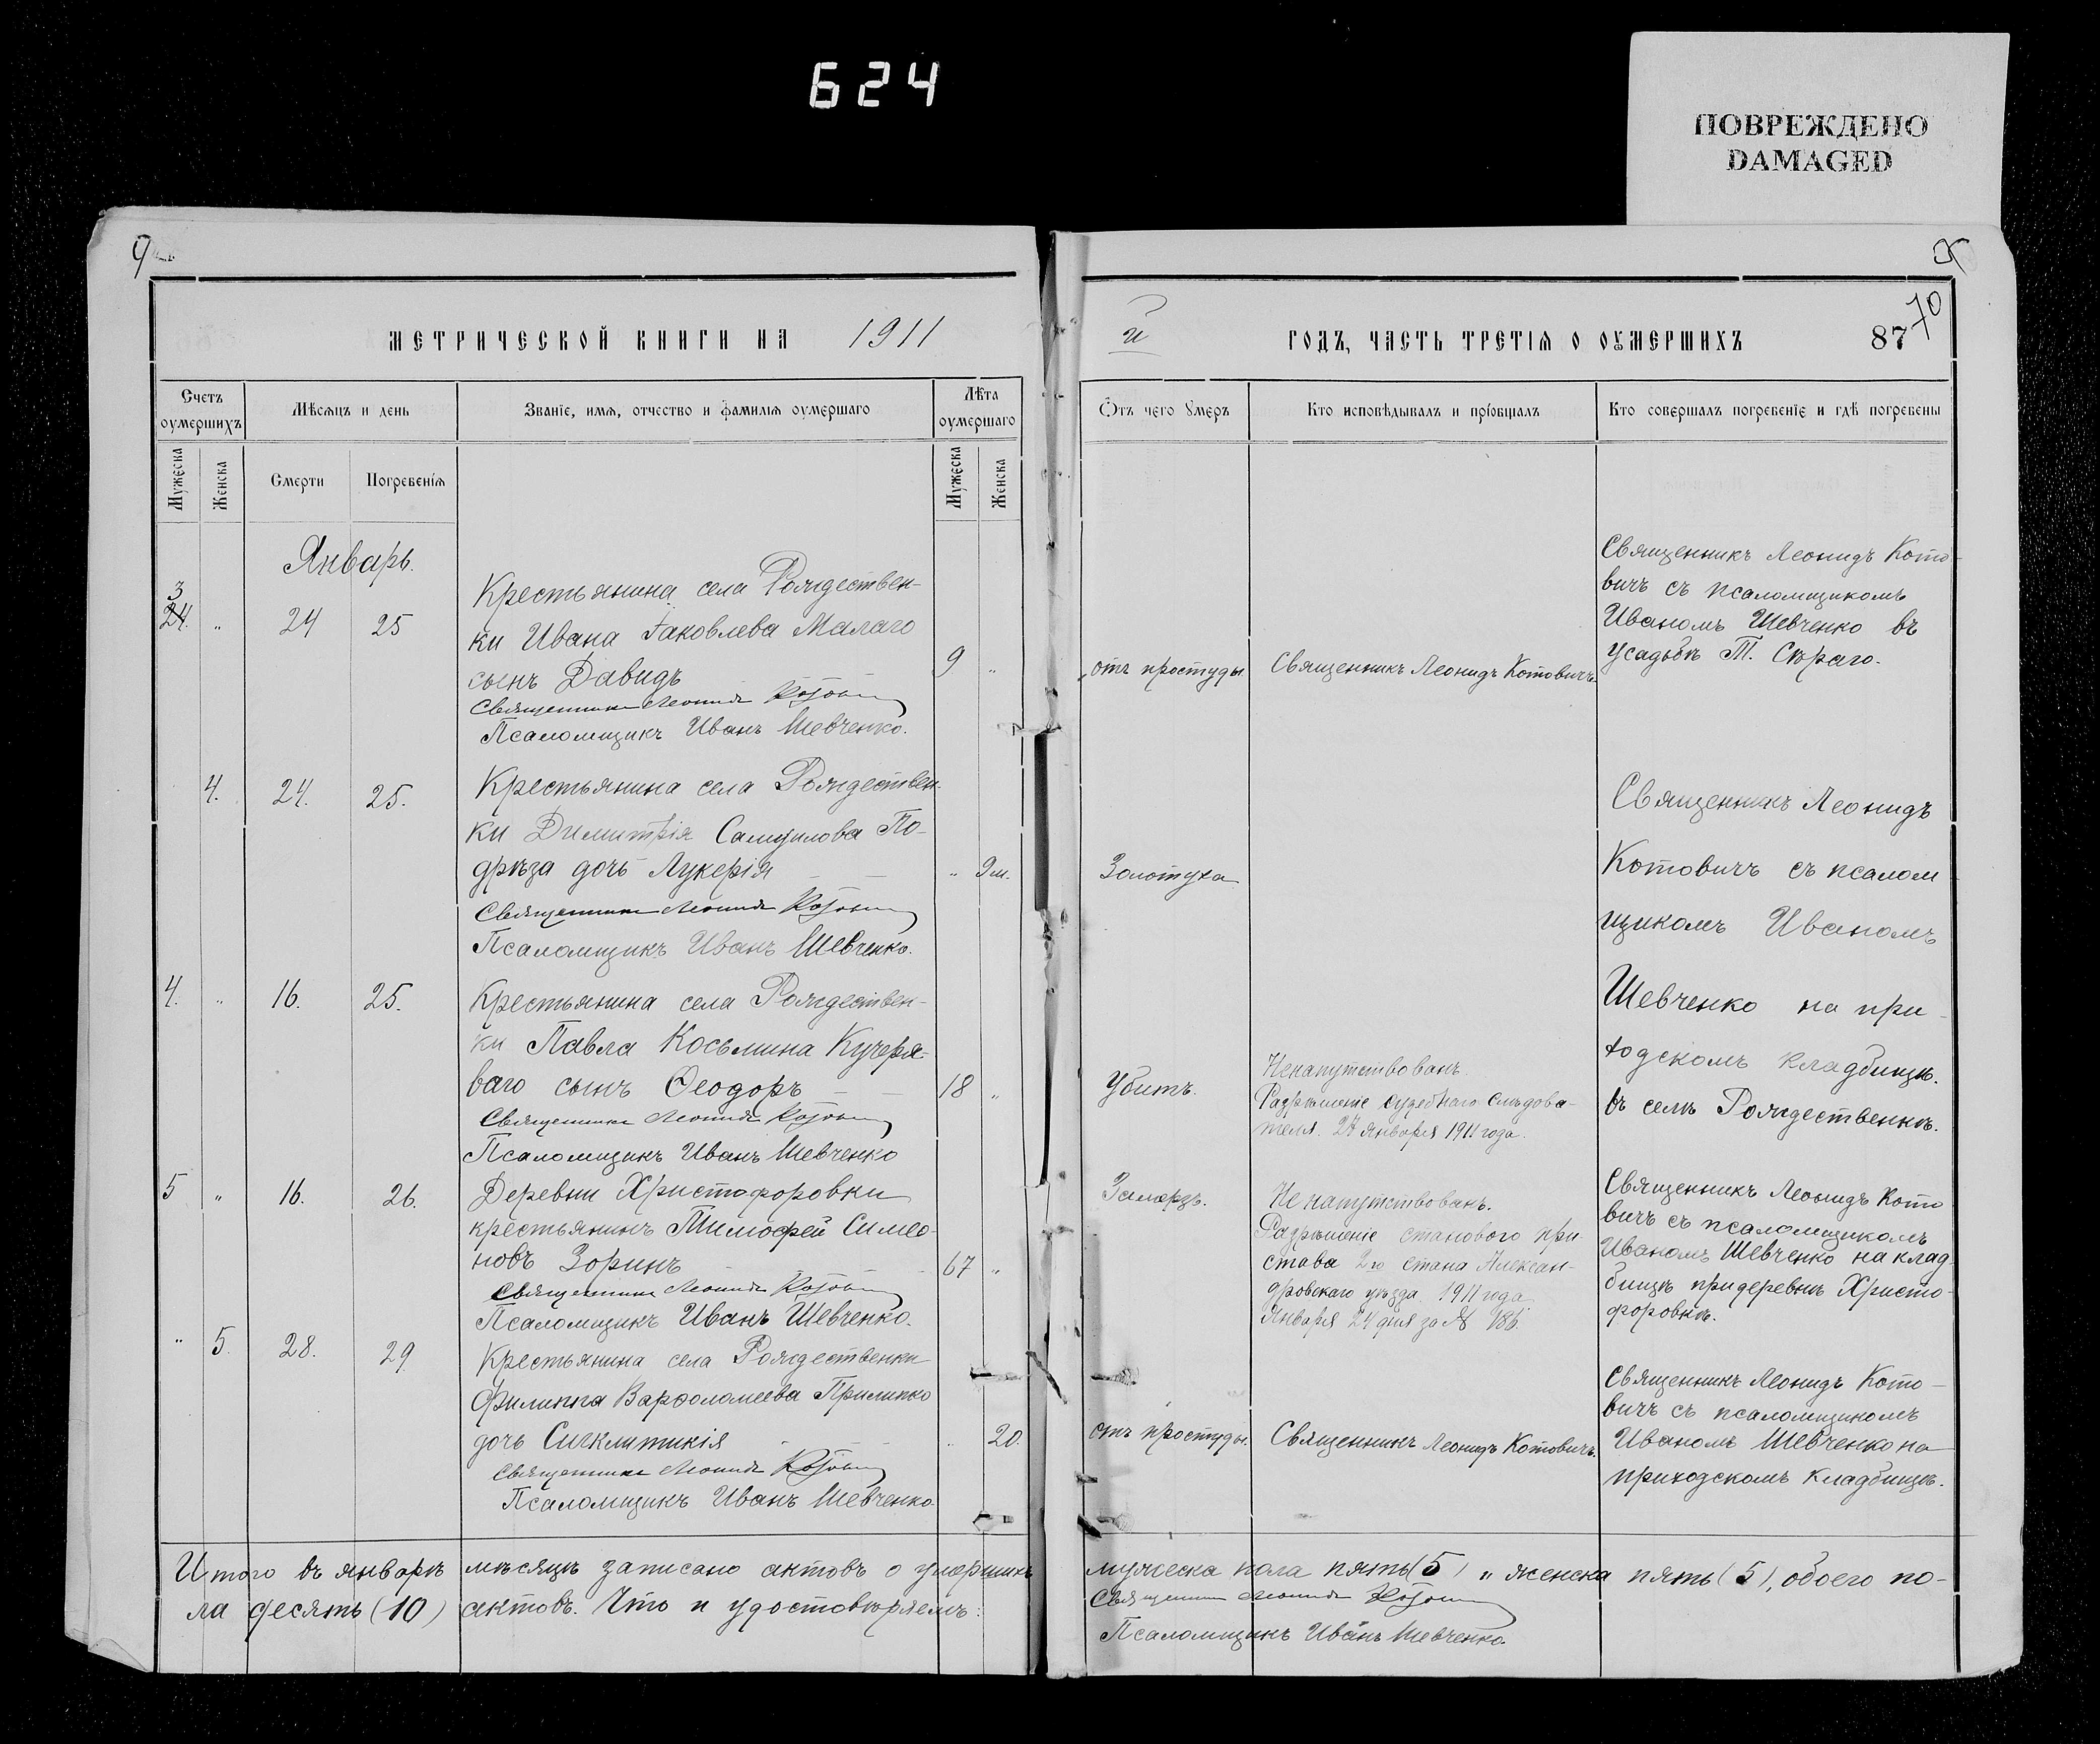 624
ПОВРЕЖДЕНО
DAMAGED
МЕТРИЧЕСКОЙ КНИГИ НА 1911
й ГОДЪ, ЧАСТЬ ТРЕТІѦ О ОУМЕРШИХЪ 87 70
Счетъ оумершихъ
Мѣсѧцъ и день
Званїе, имѧ, отчество и фамилїѧ оумершаго
Лѣта оумершаго
Ѿтъ чего оумеръ
Кто исповѣдывалъ и прїобщалъ
Кто совершалъ погребенїе и гдѣ погребены
Мужеска
Женска
Смерти
Погребенїѧ
Мужеска
Женска
Январь.
3
24. „ 24 25
Крестьянина села Рождествен-
ки Ивана Іаковлева Малаго
сынъ Давидъ
9 „
Священникъ Леонидъ Котовичъ
Псаломщикъ Иванъ Шевченко.
отъ простуды.
Священникъ Леонидъ Котовичъ.
Священникъ Леонидъ Кото-
вичъ съ псаломщикомъ
Иваномъ Шевченко въ
усадьбѣ Т. Сѣраго.
4. 24. 25.
Крестьянина села Рождествен-
ки Димитрія Самуилова По-
дрѣза дочь Лукерія
„ 9 м.
Священникъ Леонидъ Котовичъ
Псаломщикъ Иванъ Шевченко.
Золотуха
Священникъ Леонидъ
Котовичъ съ псалом
щикомъ Иваномъ
Шевченко на при-
ходскомъ кладбищѣ.
въ селѣ Рождественкѣ.
4. „ 16. 25.
Крестьянина села Рождествен-
ки Павла Косьмина Кучеря-
ваго сынъ Ѳеодоръ
18 „
Священникъ Леонидъ Котовичъ
Псаломщикъ Иванъ Шевченко
Убитъ.
Ненапутствованъ.
Разрѣшеніе судебнаго слѣдова-
теля. 24 января 1911 года.
5 „ 16. 26.
Деревни Христофоровки
крестьянинъ Тимофей Симео-
новъ Зоринъ
67 „
Священникъ Леонидъ Котовичъ
Псаломщикъ Иванъ Шевченко.
Замерзъ.
Ненапутствованъ.
Разрѣшеніе становаго при-
става 2го стана Алексан-
дровскаго уѣзда 1911 года
Января 24 дня за №
Священникъ Леонидъ Кото
вичъ съ псаломщикомъ
Иваномъ Шевченко на клад-
бищѣ при деревнѣ Христо-
форовкѣ.
„ 5. 28. 29
Крестьянина села Рождественки
Филиппа Варфоломеева Прилипко
дочь Сигклитикія
„ 20.
Священникъ Леонидъ Котовичъ
Псаломщикъ Иванъ Шевченко
отъ простуды.
Священникъ Леонидъ Котовичъ.
Священникъ Леонидъ Кото-
вичъ съ псаломщикомъ
Иваномъ Шевченко на
приходскомъ кладбищѣ.
Итого въ январѣ мѣсяцѣ записано актовъ о умершихъ мужеска пола пять (5) „ женска пять (5), обоего по-
ла десять (10) актовъ. Что и удостовѣряемъ:
Священникъ Леонидъ Котовичъ
Псаломщикъ Иванъ Шевченко.